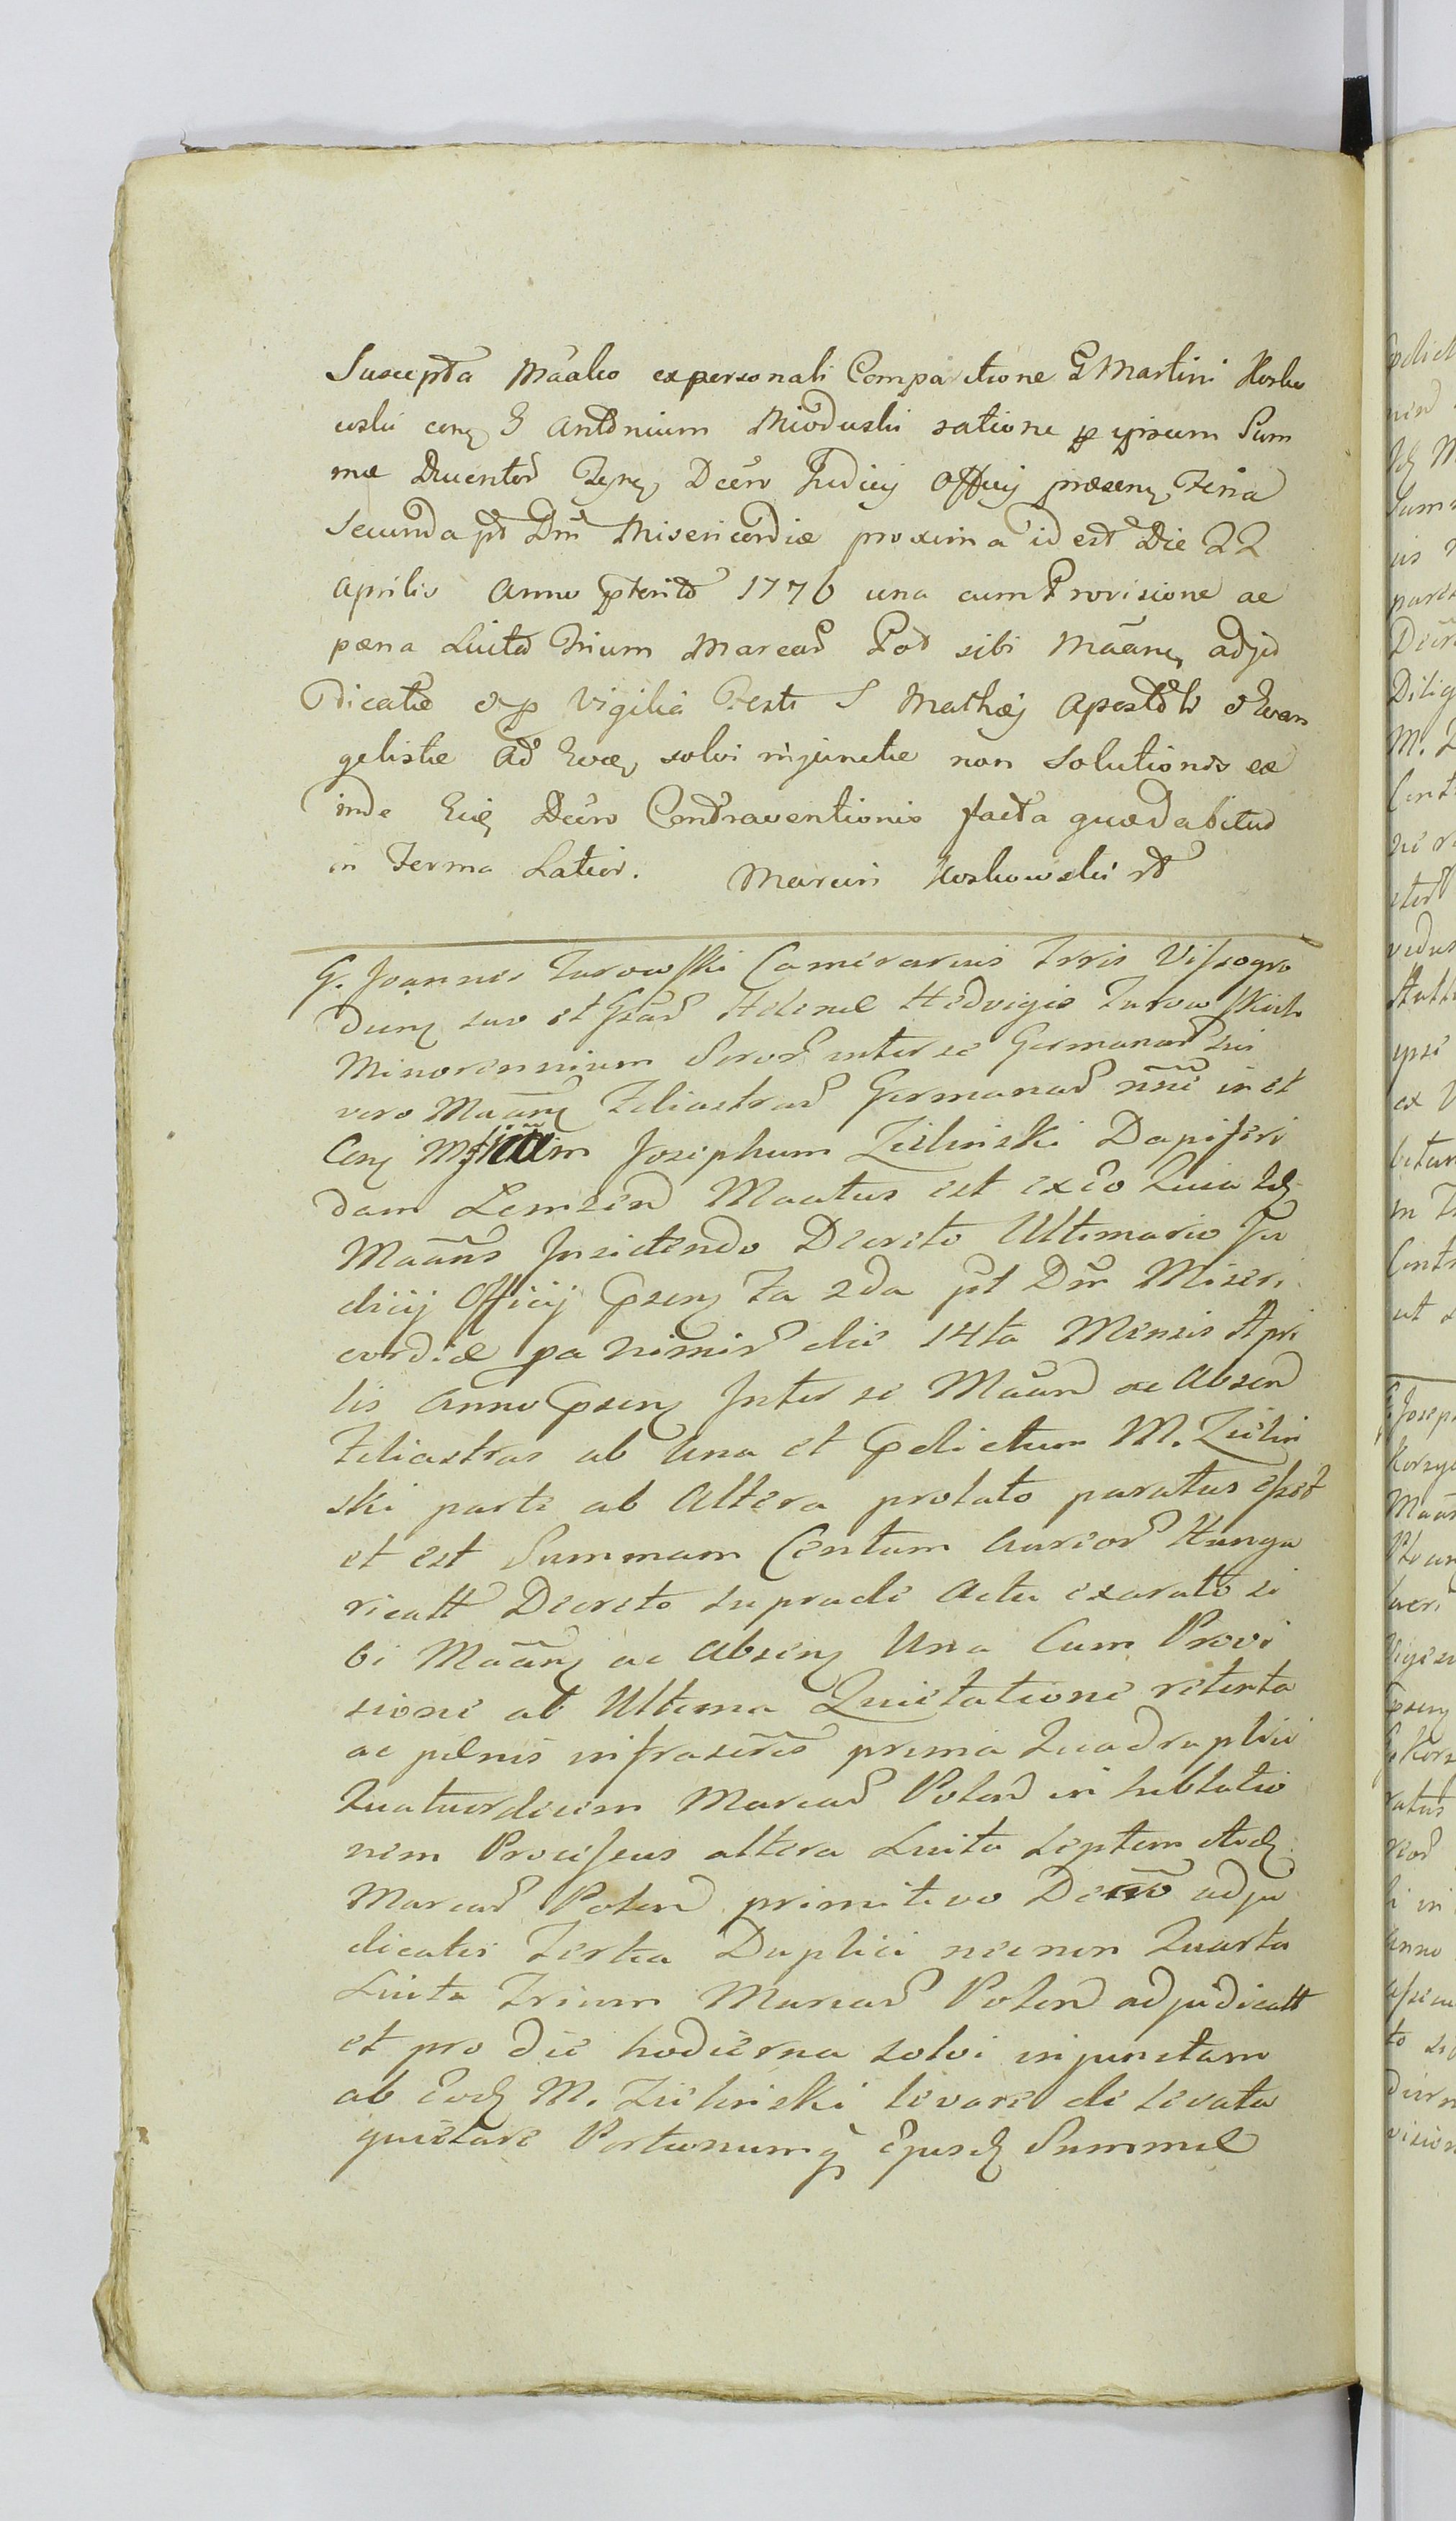 Suscepta Māalio ex personali Comparitione G Martini Kosko
wski conq G Antonium Mioduski ratione p ipsum Sum
mæ Ducentor Tynf Decro Judicij Officij præsenq Feria
Secunda pt Dnī Misericordiæ proxima id est Die 22
Aprilis Anno pterito 1776 una cum Provisione ac
pæna Luita Trium Marcar Pol sibi Māanq adju
dicatæ et p Vigilia Festi S Mathæj Apostoli et Evan
gelistæ ad Evæq solvi injunctæ non Solutionis ex
inde Eiq Decro Contraventionis facta quæ dabitur
in Forma Latior. Marcin Koskowski

G. Joannes Turowski Camerarius Trris Viszogro
dienq suo et Gsar Helenæ Hedvigis Turowskich
Minorennium Soror inter se Germanar sui
vero Māanq Filiastrar Germanar nnē in et
Conq Mgfficum Josephum Zieliński Dapiferi
dam Lomzen Maatus est exēo Quia Idq
Māans Insistendo Decreto Ultimario Ju
dicij Officij Gpsenq Fa 2da pt Dnī Miseri
cordiæ pa nimir die 14ta Mensis Apri
lis Anno Gpsenq Inter se Māan ac Absen
Filiastras ab Una et Gpdictum M. Zieliń
ski parte ab Altera prolato paratus esset
et est Summam Centum Aureor Hunga
ricatt Decreto supradi Actu exarato si
bi Māanq ac Absenq Una Cum Provi
sione ab Ultima Quietatione retenta
ac pænis infrascrēs prima Quadruplici
Quatuordecim Marcar Polon in sublatio
nem Processus altera Luita Septem itidq
Marcar Polon primitivo Decro adju
dicatis Tertia Duplici necnon Quarta
Luita Trium Marcar Polon adjudicatt
et pro die hodierna solvi injunctam
ab Eodq M. Zieliński levare de levata
quietare Portionumq Ejusdq Summæ